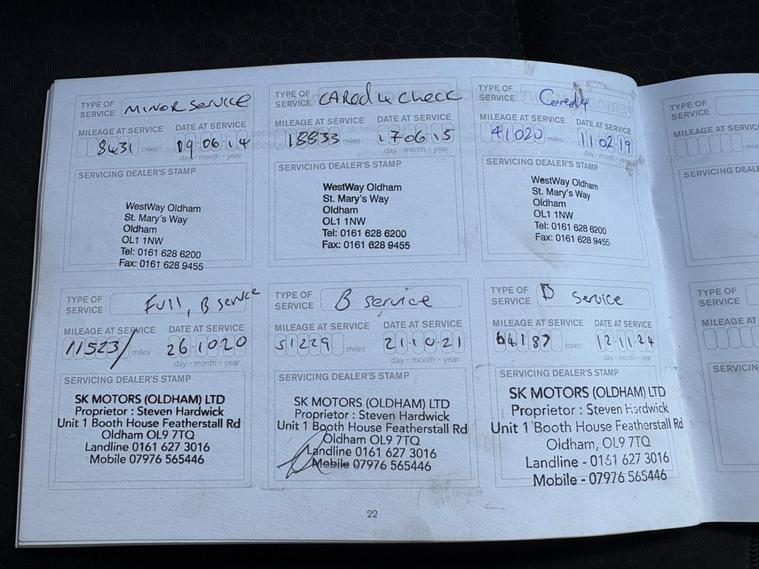 TYPE OF SERVICE MINOR Service
MILEAGE AT SERVICE DATE AT SERVICE
8431 miles 09.06.14
day - month - year
SERVICING DEALER'S STAMP
WestWay Oldham
St. Mary's Way
Oldham
OL1 1NW
Tel: 0161 628 6200
Fax: 0161 628 9455
TYPE OF SERVICE CARed 4 check
MILEAGE AT SERVICE DATE AT SERVICE
18833 miles 17.06.15
day - month - year
SERVICING DEALER'S STAMP
WestWay Oldham
St. Mary's Way
Oldham
OL1 1NW
Tel: 0161 628 6200
Fax: 0161 628 9455
TYPE OF SERVICE Cared 4
MILEAGE AT SERVICE DATE AT SERVICE
41020 miles 11.02.19
day - month - year
SERVICING DEALER'S STAMP
WestWay Oldham
St. Mary's Way
Oldham
OL1 1NW
Tel: 0161 628 6200
Fax: 0161 628 9455
TYPE OF SERVICE Full, B service
MILEAGE AT SERVICE DATE AT SERVICE
11523/ miles 26.10.20
day - month - year
SERVICING DEALER'S STAMP
SK MOTORS (OLDHAM) LTD
Proprietor : Steven Hardwick
Unit 1 Booth House Featherstall Rd
Oldham OL9 7TQ
Landline 0161 627 3016
Mobile 07976 565446
TYPE OF SERVICE B service
MILEAGE AT SERVICE DATE AT SERVICE
51229 miles 21.10.21
day - month - year
SERVICING DEALER'S STAMP
SK MOTORS (OLDHAM) LTD
Proprietor : Steven Hardwick
Unit 1 Booth House Featherstall Rd
Oldham OL9 7TQ
Landline 0161 627 3016
Mobile 07976 565446
TYPE OF SERVICE B Service
MILEAGE AT SERVICE DATE AT SERVICE
64187 miles 12.11.24
day - month - year
SERVICING DEALER'S STAMP
SK MOTORS (OLDHAM) LTD
Proprietor : Steven Hardwick
Unit 1 Booth House Featherstall Rd
Oldham, OL9 7TQ
Landline - 0161 627 3016
Mobile - 07976 565446
22
TYPE OF SERVICE
MILEAGE AT SERVICE
miles
SERVICING DEAL
TYPE OF SERVICE
MILEAGE AT SE
SERVICIN